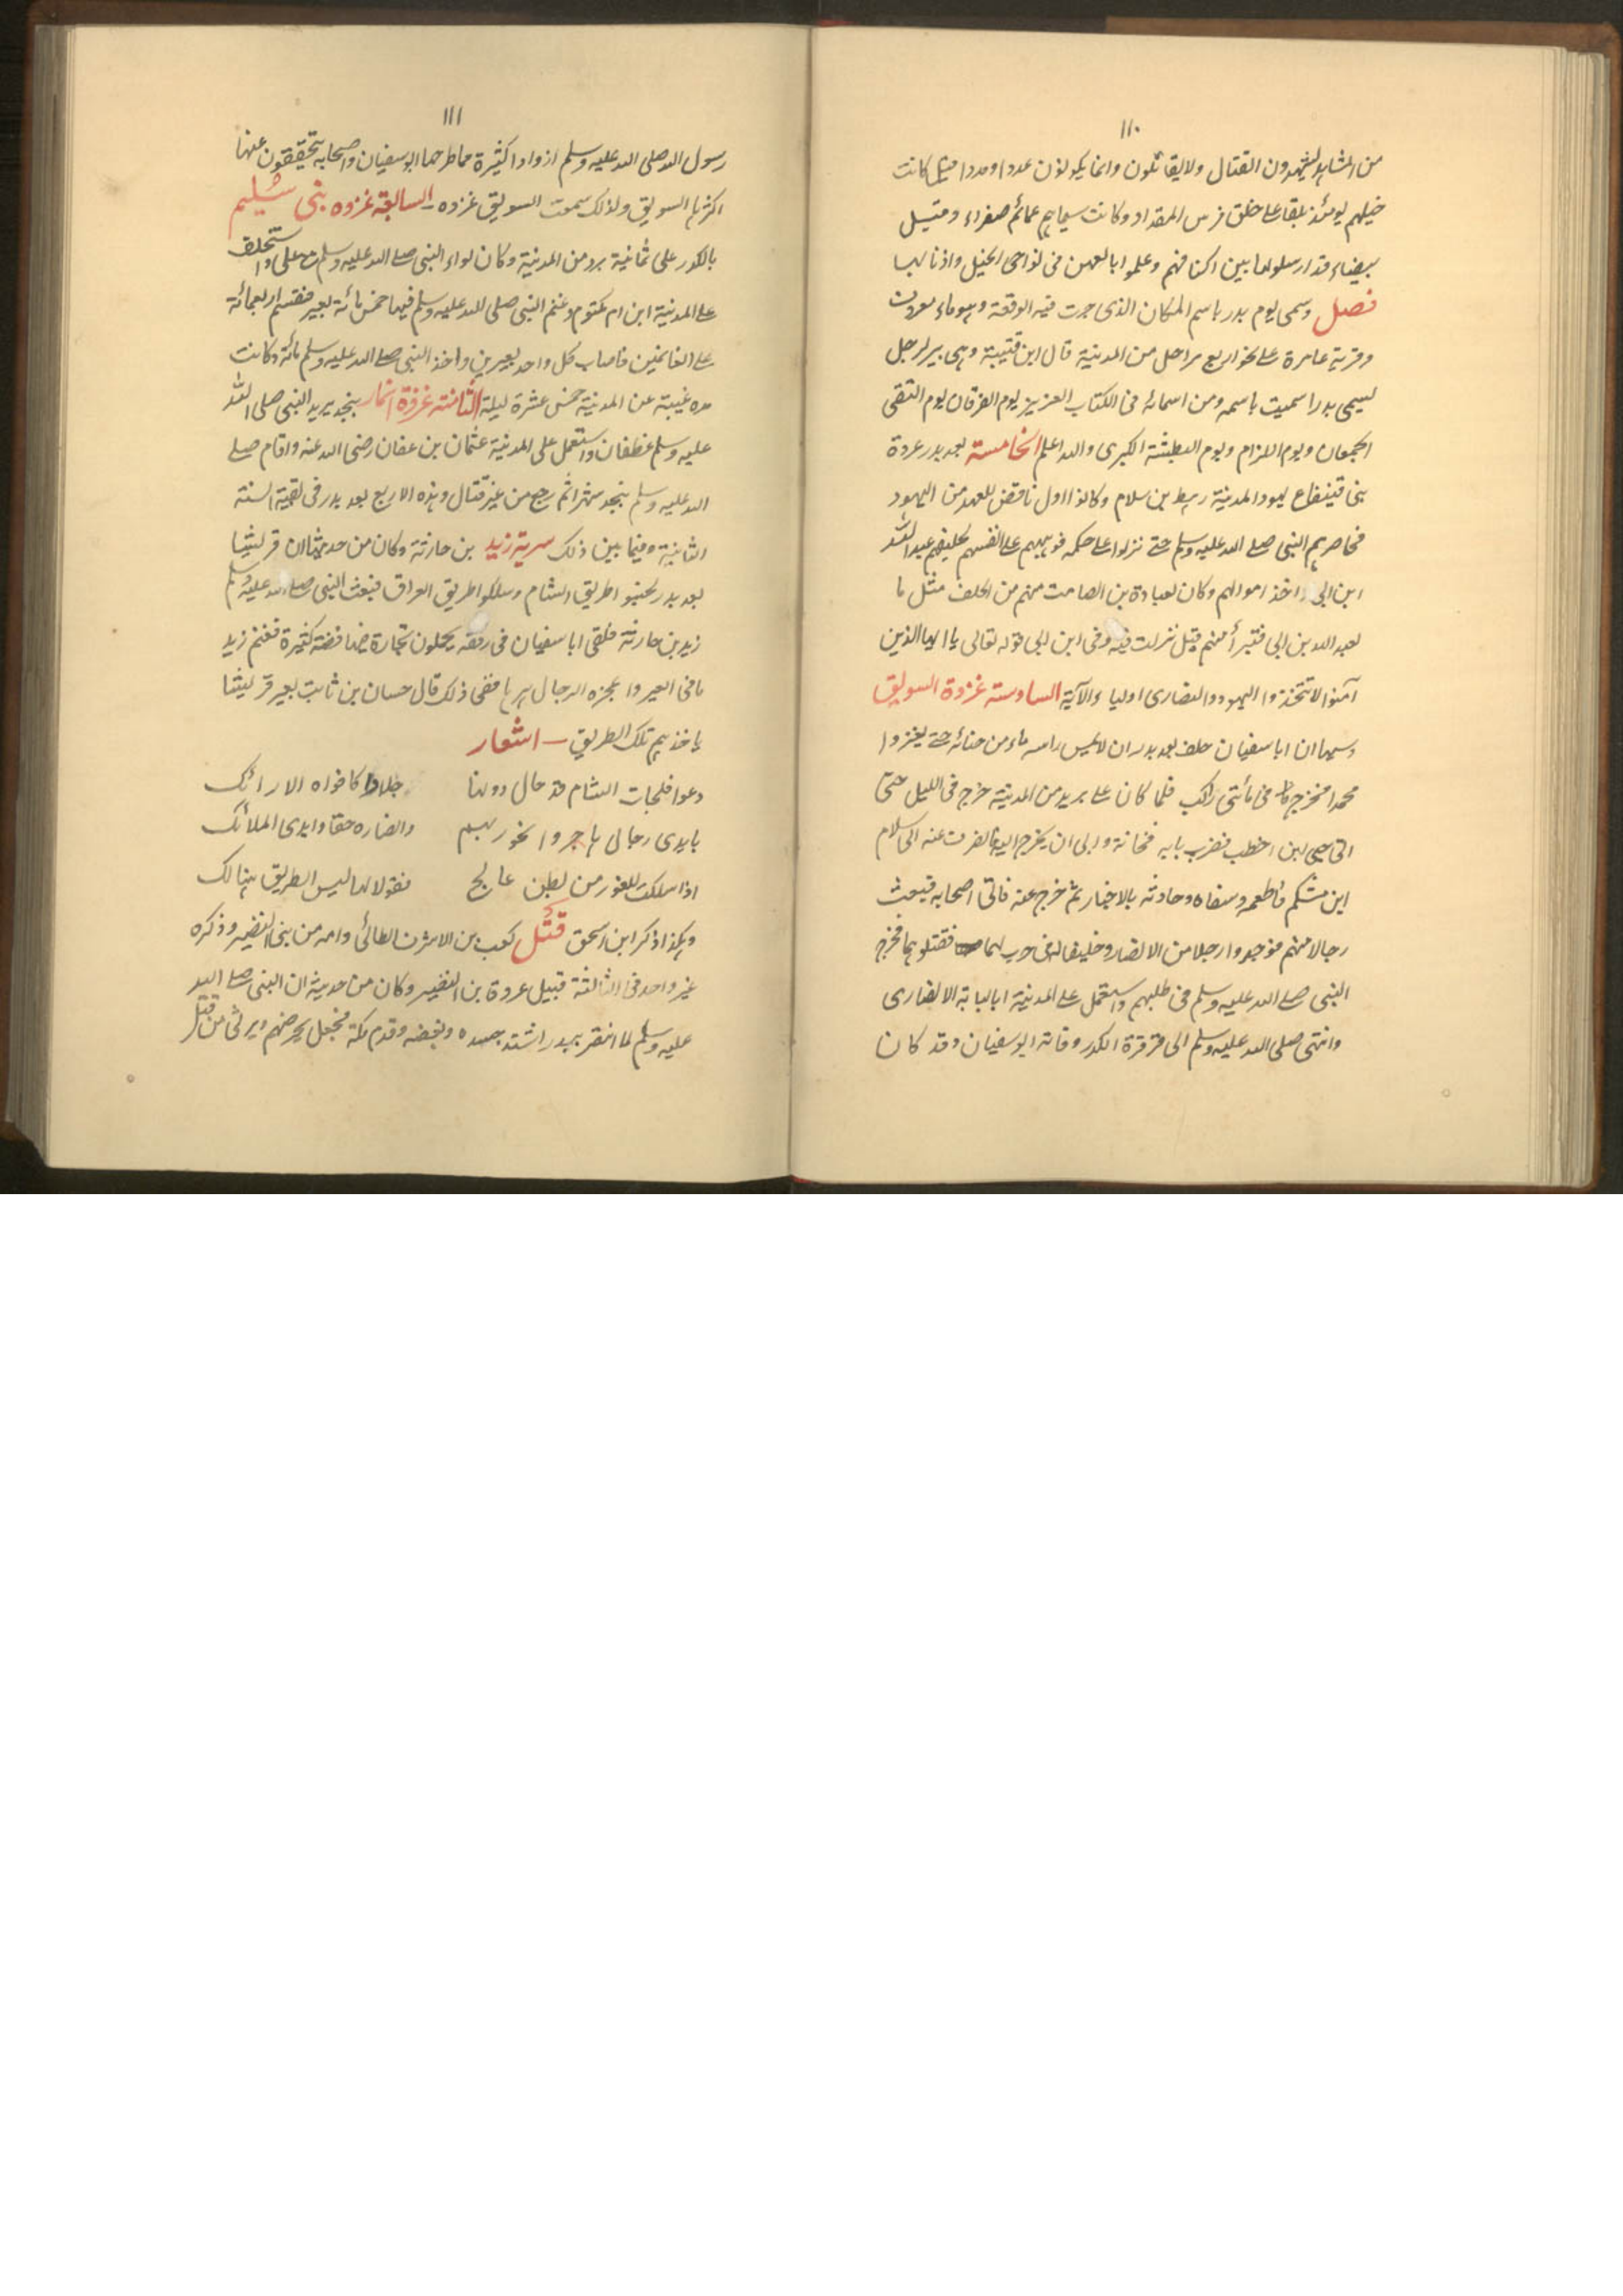 ١١٠
من المشاهد ليشهدون القتال ولا يقاتلون وانما يكونون عددا ومددا قيل كانت
خيلهم يومئذ بلقا على خلق فرس المقداد وكانت سيماهم عمائم صفراء وقيل
بيضاء قد ارسلوها بين اكتافهم وعلموا بالعهن فى نواصى الخيل واذنابها
فصل وسمى يوم بدر باسم المكان الذى جرت فيه الوقعة وهو ماء معروف
وقرية عامرة على نحو اربع مراحل من المدينة قال ابن قتيبة وهى بير لرجل
يسمى بدرا سميت باسمه ومن اسمائه فى الكتاب العزيز يوم الفرقان يوم التقى
الجمعان ويوم اللزام ويوم البطشة الكبرى والله اعلم الخامسة بعد بدر غزوة
بنى قينقاع يهود المدينة رهط بن سلام وكانوا اول ناقض للعهد من اليهود
فحاصرهم النبى صلى الله عليه وسلم حتى نزلوا على حكمه فوهبهم على انفسهم لحليفهم عبد الله
ابن ابى واخذ اموالهم وكان لعبادة بن الصامت منهم من الحلف مثل ما
لعبد الله بن ابى فتبرأ منهم قيل نزلت فيه وفى ابن ابى قوله تعالى يا ايها الذين
آمنوا لا تتخذوا اليهود والنصارى اولياء الآية السادسة غزوة السويق
وسببها ان ابا سفيان حلف بعد بدر ان لا يمس راسه ماء من جنابة حتى يغزوا
محمدا فخرج فى مأتى راكب فلما كان على بريد من المدينة خرج فى الليل حتى
اتى حيى ابن اخطب فضرب بابه فخافه وابى ان يخرج اليه فانصرف عنه الى سلام
ابن مشكم فاطعمه وسقاه وحادثه بالاخبار ثم خرج عنه فاتى اصحابه فبعث
رجالا منهم فوجدوا رجلا من الانصار وحليفا له فى حرث لهما فقتلوهما فخرج
النبى صلى الله عليه وسلم فى طلبهم واستعمل على المدينة ابا لبابة الانصارى
وانتهى صلى الله عليه وسلم الى قرقرة الكدر وفاته ابو سفيان وقد كان
١١١
رسول الله صلى الله عليه وسلم ازوادا كثيرة مما طرحها ابو سفيان واصحابه يتخففون عنها
اكثرها السويق ولذلك سميت السويق غزوه السابعة غزوه بنى سُليم
بالكدر على ثمانية برد من المدينة وكان لواء النبى صلى الله عليه وسلم مع على واستخلف
على المدينة ابن ام مكتوم وغنم النبى صلى الله عليه وسلم فيها خمس مائة بعير فقسم اربعمائة
على الغانمين فاصاب كل واحد بعيرين واخذ النبى صلى الله عليه وسلم مائة وكانت
مده غيبته عن المدينة خمس عشرة ليلة الثامنة غزوة انمار بنجد يريد النبى صلى الله
عليه وسلم غطفان واستعمل على المدينة عثمان بن عفان رضى الله عنه واقام صلى
الله عليه وسلم بنجد شهرا ثم رجع من غير قتال وهذه الاربع بعد بدر فى بقية السنة
الثانية وفيما بين ذلك سرية زيد بن حارثة وكان من حديثها ان قريشا
بعد بدر تجنبوا طريق الشام وسلكوا طريق العراق فبعث النبى صلى الله عليه وسلم
زيد بن حارثة فلقى ابا سفيان فى رفقه يحملون تجارة فيها فضة كثيرة فغنم زيد
ما فى العير واعجزه الرجال هربا ففى ذلك قال حسان بن ثابت يعير قريشا
ياخذهم تلك الطريق اشعار
دعوا فلجات الشام قد حال دونها جلادا كافواه الاراتك
بايدى رجال هاجروا نحو ربهم وانصاره حقا وايدى الملائك
اذا سلكت للغور من بطن عالج فقولا لها ليس الطريق هنالك
وهكذا ذكر ابن اسحق قُتل كعب بن الاشرف الطائى وامه من بنى النضير وذكره
غير واحد فى الثالثة قبيل غزوة بن النضير وكان من حديثه ان النبى صلى الله
عليه وسلم لما انتصر ببدر اشتد حسده وبغضه وقدم مكة فجعل يحرضهم ويرثى من قتل